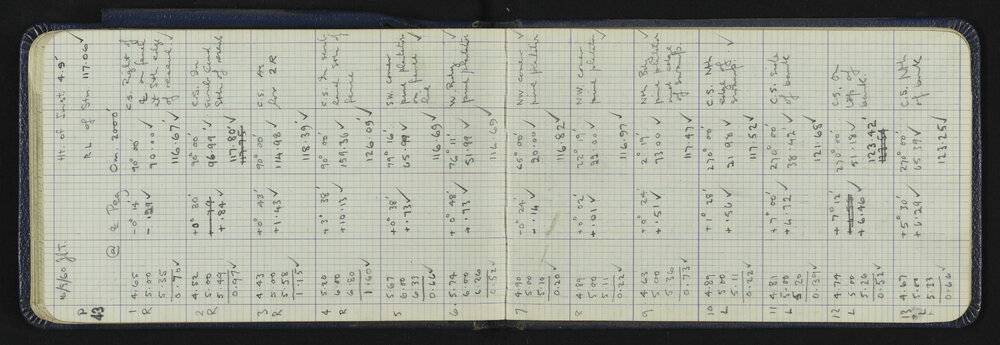 P 6/9/60 JLT. Ht. of Inst. 4.9'
43 RL of Stn 117.06 ✓
@ ₵ Peg O m. 2000'
1 4.65 -0° 14' 90° 00' C.S. Right of
R 5.00 - .29 ✓ 70.00 ✓ ₵ on fence
5.35 at Sth edge
0.70 ✓ 116.67' ✓ of reserve
2 4.52 +0° 30' 90° 00' C.S. In
R 5.00 96.99' ✓ scrub land
5.49 + .84 ✓ Sth of reserve
0.97 ✓ 117.80 ✓
3 4.43 +0° 43' 90° 00' C.S. As
R 5.00 +1.43 ✓ 114.98 ✓ for 2R
5.58
1.15 ✓ 118.39 ✓
4 5.20 +3° 38' 90° 00' C.S. In scrub
R 6.00 +10.13 ✓ 159.36 ✓ land Sth of
6.80 fence
1.60 ✓ 126.09' ✓
5 5.67 +0° 38' 79° 16' SW. corner
6.00 + .73 ✓ 65.99 ✓ pine plantation
6.33 on fence
0.66 ✓ 116.69 ✓ line
6 5.74 +0° 48' 76° 11' W. Bdy
6.00 + .73 ✓ 51.99 ✓ pine plantation
6.26
0.52 ✓ 116.69 ✓
7 4.90 -0° 24' 65° 00' NW corner
5.00 - .14 ✓ 20.00 ✓ pine plantation
5.10
0.20 ✓ 116.82 ✓
8 4.89 +0° 02' 22° 19' NW corner
5.00 + .01 ✓ 22.00 ✓ pine plantation
5.11
0.22 ✓ 116.97 ✓
9 4.63 +0° 24' 2° 19' Nth Bdy
5.00 + .51 ✓ 73.00 ✓ pine plantation
5.36 and edge
0.73 ✓ 117.47 ✓ of swamp.
10 4.89 +1° 28' 270° 00' C.S. Nth
L 5.00 + .56 ✓ 21.98 ✓ edge of
5.11 swamp. ✓
0.22 ✓ 117.52 ✓
11 4.81 +7° 00' 270° 00' C.S. Side
L 5.00 +4.72 ✓ 38.42 ✓ of bank
5.20
0.39 ✓ 121.68 ✓
12 4.74 +7° 12' 270° 00' C.S. On
L 5.00 51.18 ✓ top of
5.26 +6.46 ✓ 123.42' bank.
0.52 ✓
13 4.67 +5° 30' 270° 00' C.S. Nth
L 5.00 +6.29 ✓ 65.39 ✓ of bank
5.33
0.66 ✓ 123.25 ✓